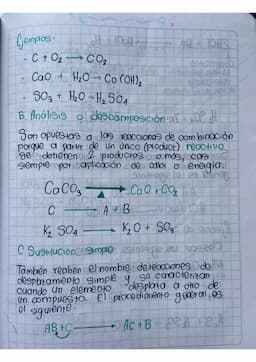 Ejemplos:
- C + O₂ → CO₂
- CaO + H₂O → Ca(OH)₂
- SO₃ + H₂O → H₂SO₄
B. Análisis o descomposición:
Son opuestas a las reacciones de combinación
porque a partir de un único (producer) reactivo
se obtienen 2 productos o más, casi
siempre por aplicación de calor o energía.
CaCO₃ → CaO + CO₂
C → A + B
K₂SO₄ → K₂O + SO₃
C. Sustitución simple
También reciben el nombre de reacciones de
desplazamiento simple y se caracterizan
cuando un elemento desplaza a otro de
un compuesto. El procedimiento general es
el siguiente:
AB + C → AC + B